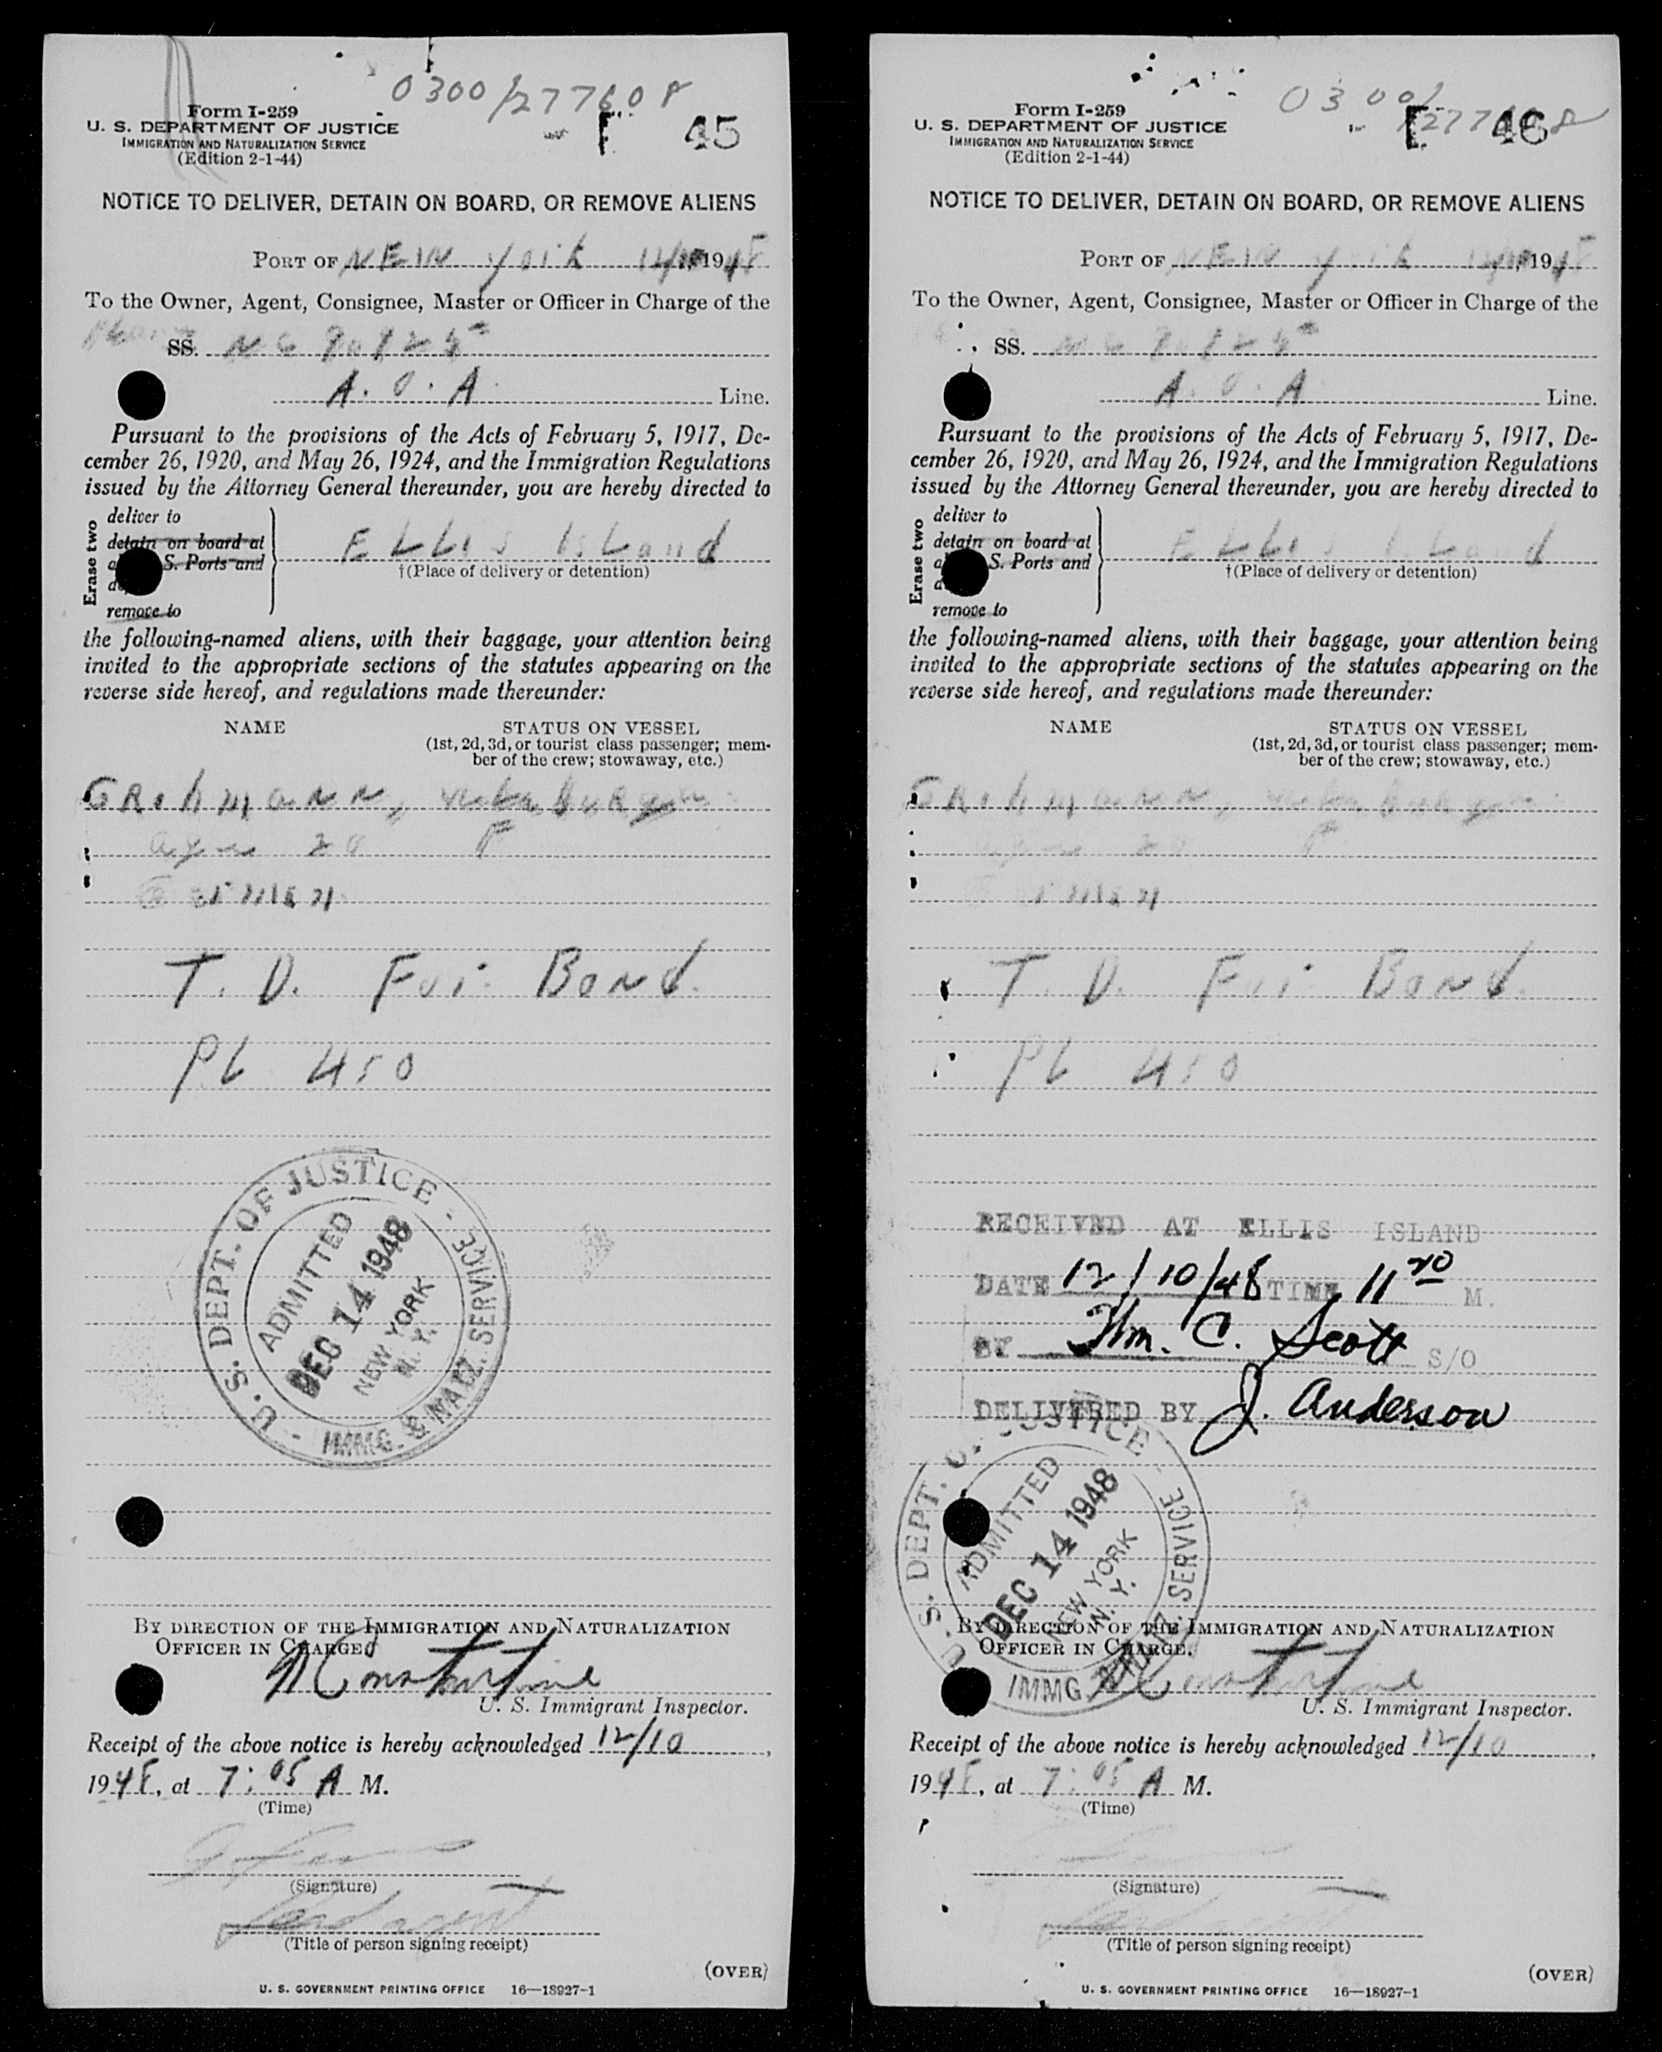 0300/277608
Form I-259
U. S. DEPARTMENT OF JUSTICE
IMMIGRATION AND NATURALIZATION SERVICE
(Edition 2-1-44)
45
NOTICE TO DELIVER, DETAIN ON BOARD, OR REMOVE ALIENS
PORT OF NEW York 12/10 1948
To the Owner, Agent, Consignee, Master or Officer in Charge of the
SS. NC 90825
A. O. A. Line.
Pursuant to the provisions of the Acts of February 5, 1917, De-
cember 26, 1920, and May 26, 1924, and the Immigration Regulations
issued by the Attorney General thereunder, you are hereby directed to
Erase two
deliver to
detain on board at
S. Ports and
remove to
ELLIS ISLand
†(Place of delivery or detention)
the following-named aliens, with their baggage, your attention being
invited to the appropriate sections of the statutes appearing on the
reverse side hereof, and regulations made thereunder:
NAME STATUS ON VESSEL
(1st, 2d, 3d, or tourist class passenger; mem-
ber of the crew; stowaway, etc.)
GRohmann,
age 20 F
T. D. For Bond.
PL 450
U. S. DEPT. OF JUSTICE - IMMG. & NATZ. SERVICE
ADMITTED
DEC 14 1948
NEW YORK
N. Y.
BY DIRECTION OF THE IMMIGRATION AND NATURALIZATION
OFFICER IN CHARGE.
U. S. Immigrant Inspector.
Receipt of the above notice is hereby acknowledged 12/10,
1948, at 7:05 A M.
(Time)
(Signature)
(Title of person signing receipt)
(OVER)
U. S. GOVERNMENT PRINTING OFFICE 16—18927-1
0300/277608
Form I-259
U. S. DEPARTMENT OF JUSTICE
IMMIGRATION AND NATURALIZATION SERVICE
(Edition 2-1-44)
46
NOTICE TO DELIVER, DETAIN ON BOARD, OR REMOVE ALIENS
PORT OF NEW York 12/10 1948
To the Owner, Agent, Consignee, Master or Officer in Charge of the
SS. NC 90825
A. O. A. Line.
Pursuant to the provisions of the Acts of February 5, 1917, De-
cember 26, 1920, and May 26, 1924, and the Immigration Regulations
issued by the Attorney General thereunder, you are hereby directed to
Erase two
deliver to
detain on board at
S. Ports and
remove to
ELLIS ISLand
†(Place of delivery or detention)
the following-named aliens, with their baggage, your attention being
invited to the appropriate sections of the statutes appearing on the
reverse side hereof, and regulations made thereunder:
NAME STATUS ON VESSEL
(1st, 2d, 3d, or tourist class passenger; mem-
ber of the crew; stowaway, etc.)
GRohmann,
age 20 F
T. D. For Bond.
PL 450
RECEIVED AT ELLIS ISLAND
DATE 12/10/48 TIME 11 20 M.
BY Wm. C. Scott S/O
DELIVERED BY J. Anderson
U. S. DEPT. OF JUSTICE - IMMG. & NATZ. SERVICE
ADMITTED
DEC 14 1948
NEW YORK
N. Y.
BY DIRECTION OF THE IMMIGRATION AND NATURALIZATION
OFFICER IN CHARGE.
U. S. Immigrant Inspector.
Receipt of the above notice is hereby acknowledged 12/10,
1948, at 7:05 A M.
(Time)
(Signature)
(Title of person signing receipt)
(OVER)
U. S. GOVERNMENT PRINTING OFFICE 16—18927-1